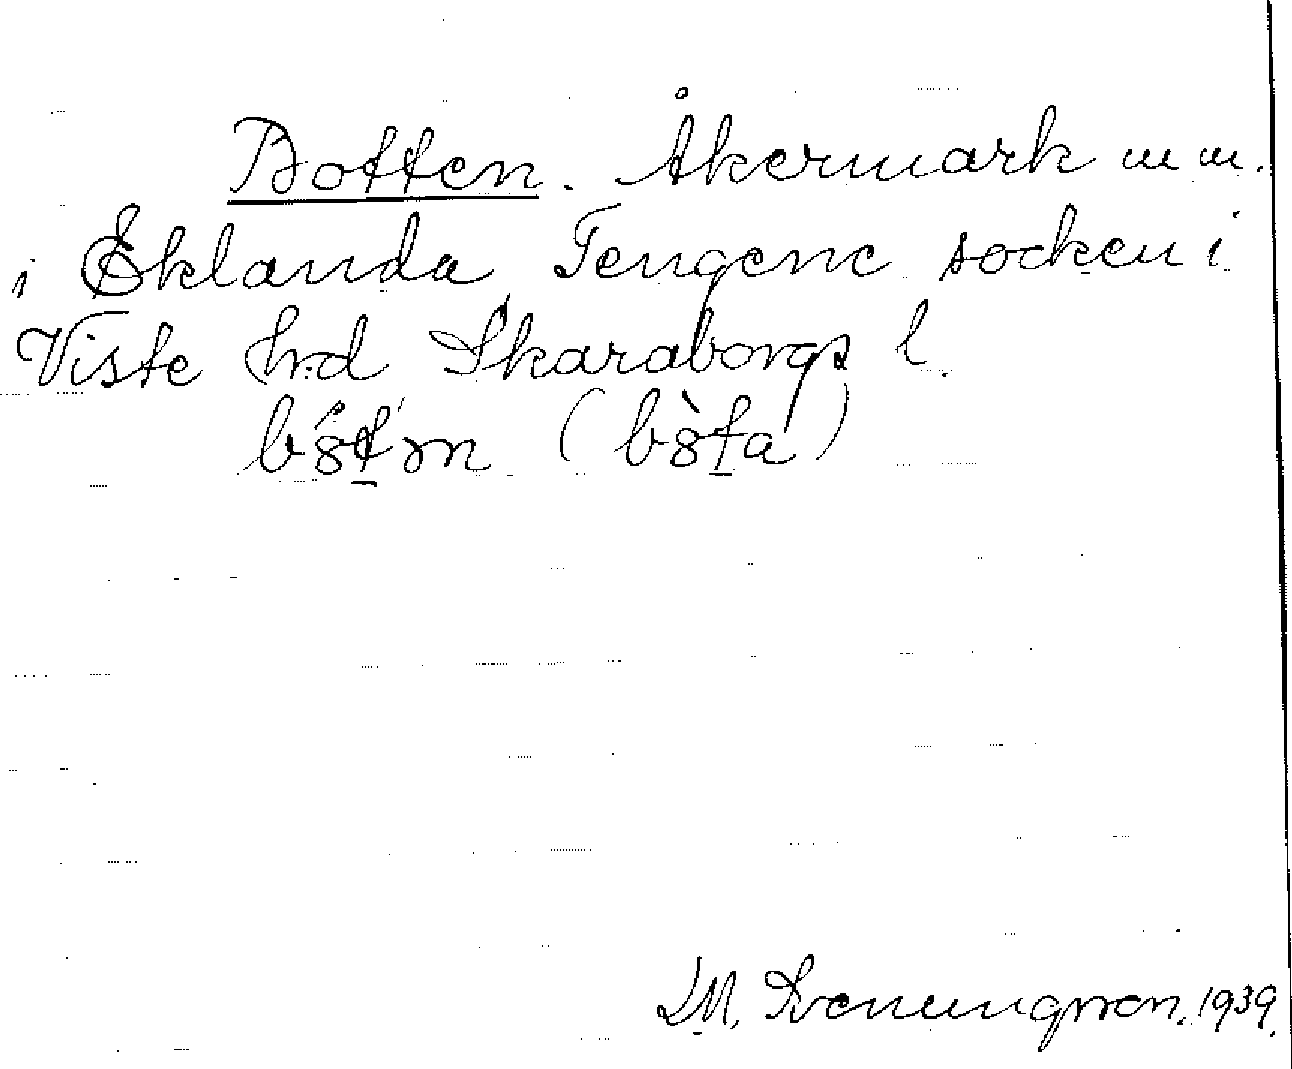 Botten. Åkermark m m.
i Eklanda, Tengene socken i
Viste hrd Skaraborgs l.
Svenungsson. 1939.